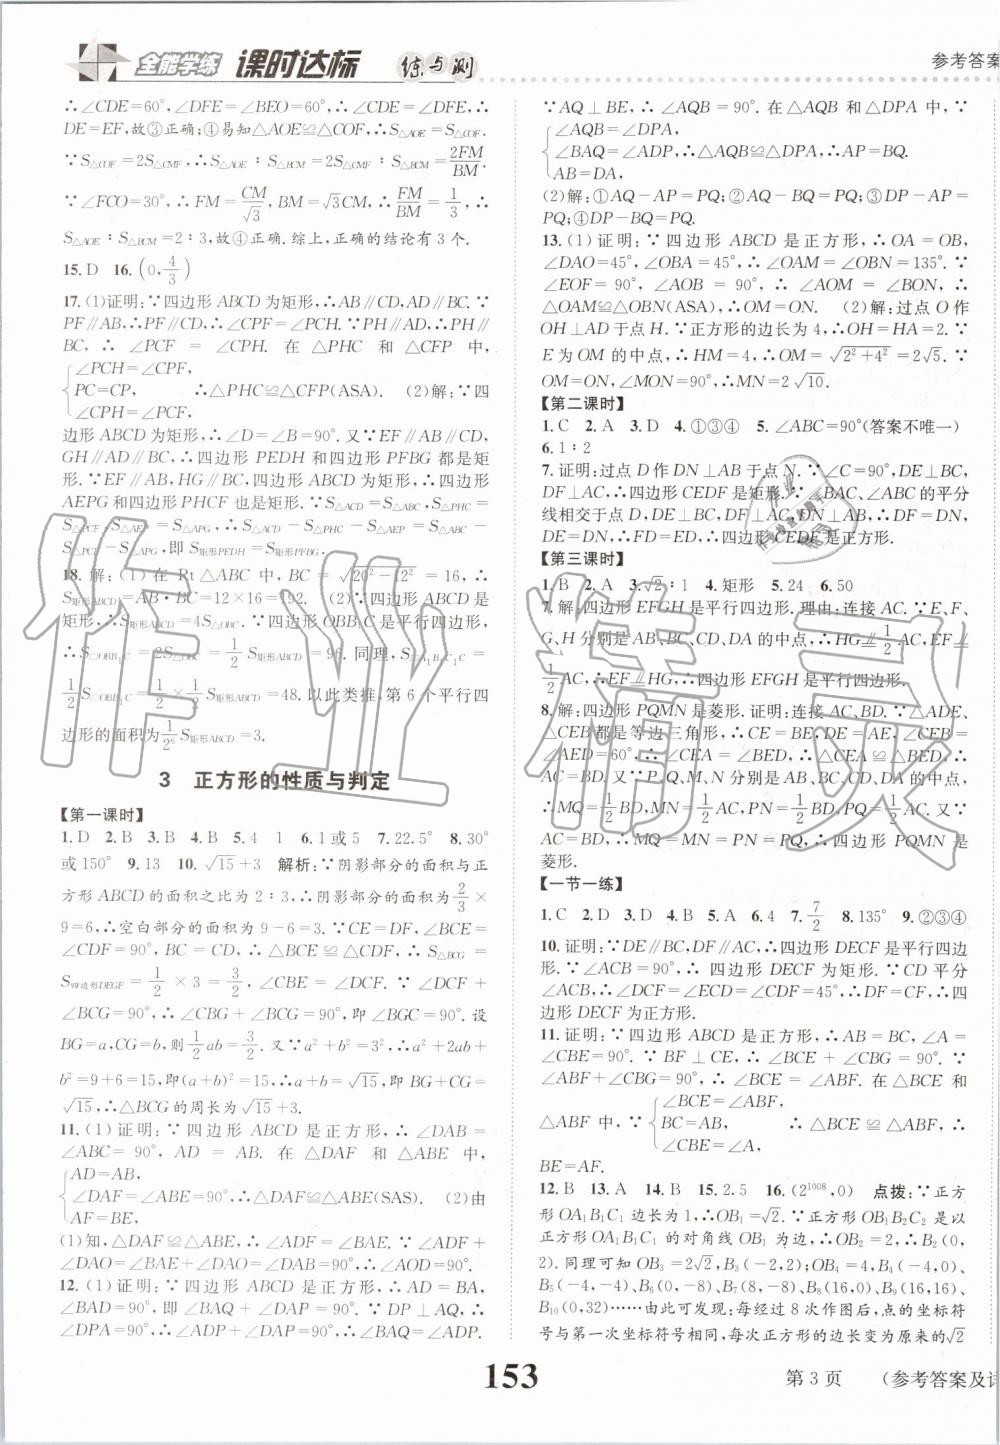 全能学练 课时达标 练与测
参考答案
∴∠CDE=60°,∠DFE=∠BEO=60°,∴∠CDE=∠DFE,∴
DE=EF,故③正确;④易知△AOE≌△COF,∴S△AOE=S△COF.
∵S△COF=2S△CMF,∴S△AOE∶S△BCM=2S△CMF∶S△BCM=2FM/BM.
∵∠FCO=30°,∴FM=CM/√3,BM=√3CM,∴FM/BM=1/3,∴
S△AOE∶S△BCM=2∶3,故④正确.综上,正确的结论有3个.
15.D 16.(0,4/3)
17.(1)证明:∵四边形ABCD为矩形,∴AB∥CD,AD∥BC.∵
PF∥AB,∴PF∥CD,∴∠CPF=∠PCH.∵PH∥AD,∴PH∥
BC,∴∠PCF=∠CPH.在△PHC和△CFP中,
{∠PCH=∠CPF,
PC=CP, ∴△PHC≌△CFP(ASA). (2)解:∵四
∠CPH=∠PCF,
边形ABCD为矩形,∴∠D=∠B=90°.又∵EF∥AB∥CD,
GH∥AD∥BC,∴四边形PEDH和四边形PFBG都是矩
形.∵EF∥AB∥CD,GH∥AD∥BC,∴四边形
AEPG和四边形PHCF也是矩形.∵S△ACD=S△ABC,S△PHC=
S△PCF,S△AEP=S△APG,∴S△ACD−S△PHC−S△AEP=S△ABC−
S△PCF−S△APG,即S矩形PEDH=S矩形PFBG.
18.解:(1)在Rt△ABC中,BC=√(20²−12²)=16,∴
S矩形ABCD=AB·BC=12×16=192. (2)∵四边形ABCD是
矩形,∴S矩形ABCD=4S△OBC.∵四边形OBB₁C是平行四边形,
∴S▱OBB₁C=2S△OBC=1/2S矩形ABCD=96.同理,S▱A₁B₁C₁C=
1/2S▱OBB₁C=1/2×1/2S矩形ABCD=48.以此类推,第6个平行四
边形的面积为1/2⁶S矩形ABCD=3.
3 正方形的性质与判定
【第一课时】
1.D 2.B 3.B 4.B 5.4 1 6.1或5 7.22.5° 8.30°
或150° 9.13 10.√15+3 解析:∵阴影部分的面积与正
方形ABCD的面积之比为2∶3,∴阴影部分的面积为2/3×
9=6,∴空白部分的面积为9−6=3.∵CE=DF,∠BCE=
∠CDF=90°,BC=CD,∴△BCE≌△CDF,∴S△BCG=
S四边形DEGF=1/2×3=3/2,∠CBE=∠DCF.∵∠DCF+
∠BCG=90°,∴∠CBG+∠BCG=90°,即∠BGC=90°.设
BG=a,CG=b,则1/2ab=3/2.又∵a²+b²=3²,∴a²+2ab+
b²=9+6=15,即(a+b)²=15,∴a+b=√15,即BG+CG=
√15,∴△BCG的周长为√15+3.
11.(1)证明:∵四边形ABCD是正方形,∴∠DAB=
∠ABC=90°,AD=AB.在△DAF和△ABE中,
{AD=AB,
∠DAF=∠ABE=90°,∴△DAF≌△ABE(SAS). (2)由
AF=BE,
(1)知,△DAF≌△ABE,∴∠ADF=∠BAE.∵∠ADF+
∠DAO=∠BAE+∠DAO=∠DAB=90°,∴∠AOD=90°.
12.(1)证明:∵四边形ABCD是正方形,∴AD=BA,
∠BAD=90°,即∠BAQ+∠DAP=90°.∵DP⊥AQ,∴
∠DPA=90°,∴∠ADP+∠DAP=90°,∴∠BAQ=∠ADP.
∵AQ⊥BE,∴∠AQB=90°.在△AQB和△DPA中,∵
{∠AQB=∠DPA,
∠BAQ=∠ADP,∴△AQB≌△DPA,∴AP=BQ.
AB=DA,
(2)解:①AQ−AP=PQ;②AQ−BQ=PQ;③DP−AP=
PQ;④DP−BQ=PQ.
13.(1)证明:∵四边形ABCD是正方形,∴OA=OB,
∠DAO=45°,∠OBA=45°,∴∠OAM=∠OBN=135°.∵
∠EOF=90°,∠AOB=90°,∴∠AOM=∠BON,∴
△OAM≌△OBN(ASA),∴OM=ON. (2)解:过点O作
OH⊥AD于点H.∵正方形的边长为4,∴OH=HA=2.∵
E为OM的中点,∴HM=4,∴OM=√(2²+4²)=2√5.∵
OM=ON,∠MON=90°,∴MN=2√10.
【第二课时】
1.C 2.A 3.D 4.①③④ 5.∠ABC=90°(答案不唯一)
6.1∶2
7.证明:过点D作DN⊥AB于点N.∵∠C=90°,DE⊥BC,
DF⊥AC,∴四边形CEDF是矩形.∵∠BAC、∠ABC的平分
线相交于点D,DE⊥BC,DF⊥AC,DN⊥AB,∴DF=
DN,DE=DN,∴FD=ED,∴四边形CEDF是正方形.
【第三课时】
1.B 2.A 3.√2∶1 4.矩形 5.24 6.50
7.解:四边形EFGH是平行四边形.理由:连接AC.∵E、F、
G、H分别是AB、BC、CD、DA的中点,∴HG⫽1/2AC,EF⫽
1/2AC,∴EF⫽HG,∴四边形EFGH是平行四边形.
8.解:四边形PQMN是菱形.证明:连接AC、BD.∵△ADE、
△CEB都是等边三角形,∴DE=AE,∠CEB=
∠AED=60°,∴∠CEA=∠BED,∴△CEA≌△BED,∴
AC=BD.∵P、Q、M、N分别是AB、BC、CD、DA的中点,
∴MQ=1/2BD,MN=1/2AC,PN=1/2BD,PQ=1/2AC.∵
AC=BD,∴MQ=MN=PN=PQ,∴四边形PQMN是
菱形.
【一节一练】
1.C 2.D 3.D 4.B 5.A 6.4 7.7/2 8.135° 9.②③④
10.证明:∵DE∥BC,DF∥AC,∴四边形DECF是平行四边
形.∵∠ACB=90°,∴四边形DECF为矩形.∵CD平分
∠ACB,∴∠DCF=∠ECD=∠CDF=45°,∴DF=CF,∴四
边形DECF为正方形.
11.证明:∵四边形ABCD是正方形,∴AB=BC,∠A=
∠CBE=90°.∵BF⊥CE,∴∠BCE+∠CBG=90°.∵
∠ABF+∠CBG=90°,∴∠BCE=∠ABF.在△BCE和
△ABF中,∵{∠BCE=∠ABF,
BC=AB, ∴△BCE≌△ABF,∴
∠CBE=∠A,
BE=AF.
12.B 13.A 14.B 15.2.5 16.(2¹⁰⁰⁸,0) 点拨:∵正方
形OA₁B₁C₁边长为1,∴OB₁=√2.∵正方形OB₁B₂C₂是以
正方形OA₁B₁C₁的对角线OB₁为边,∴OB₂=2,∴B₂(0,
2).同理可知OB₃=2√2,B₃(−2,2);B₄(−4,0),
B₅(−4,−4),B₆(0,−8),B₇(8,−8),B₈(16,0),B₉(16,16),
B₁₀(0,32)……由此可发现:每经过8次作图后,点的坐标符
号与第一次坐标符号相同,每次正方形的边长变为原来的√2
153
第3页
(参考答案及详
作业精灵